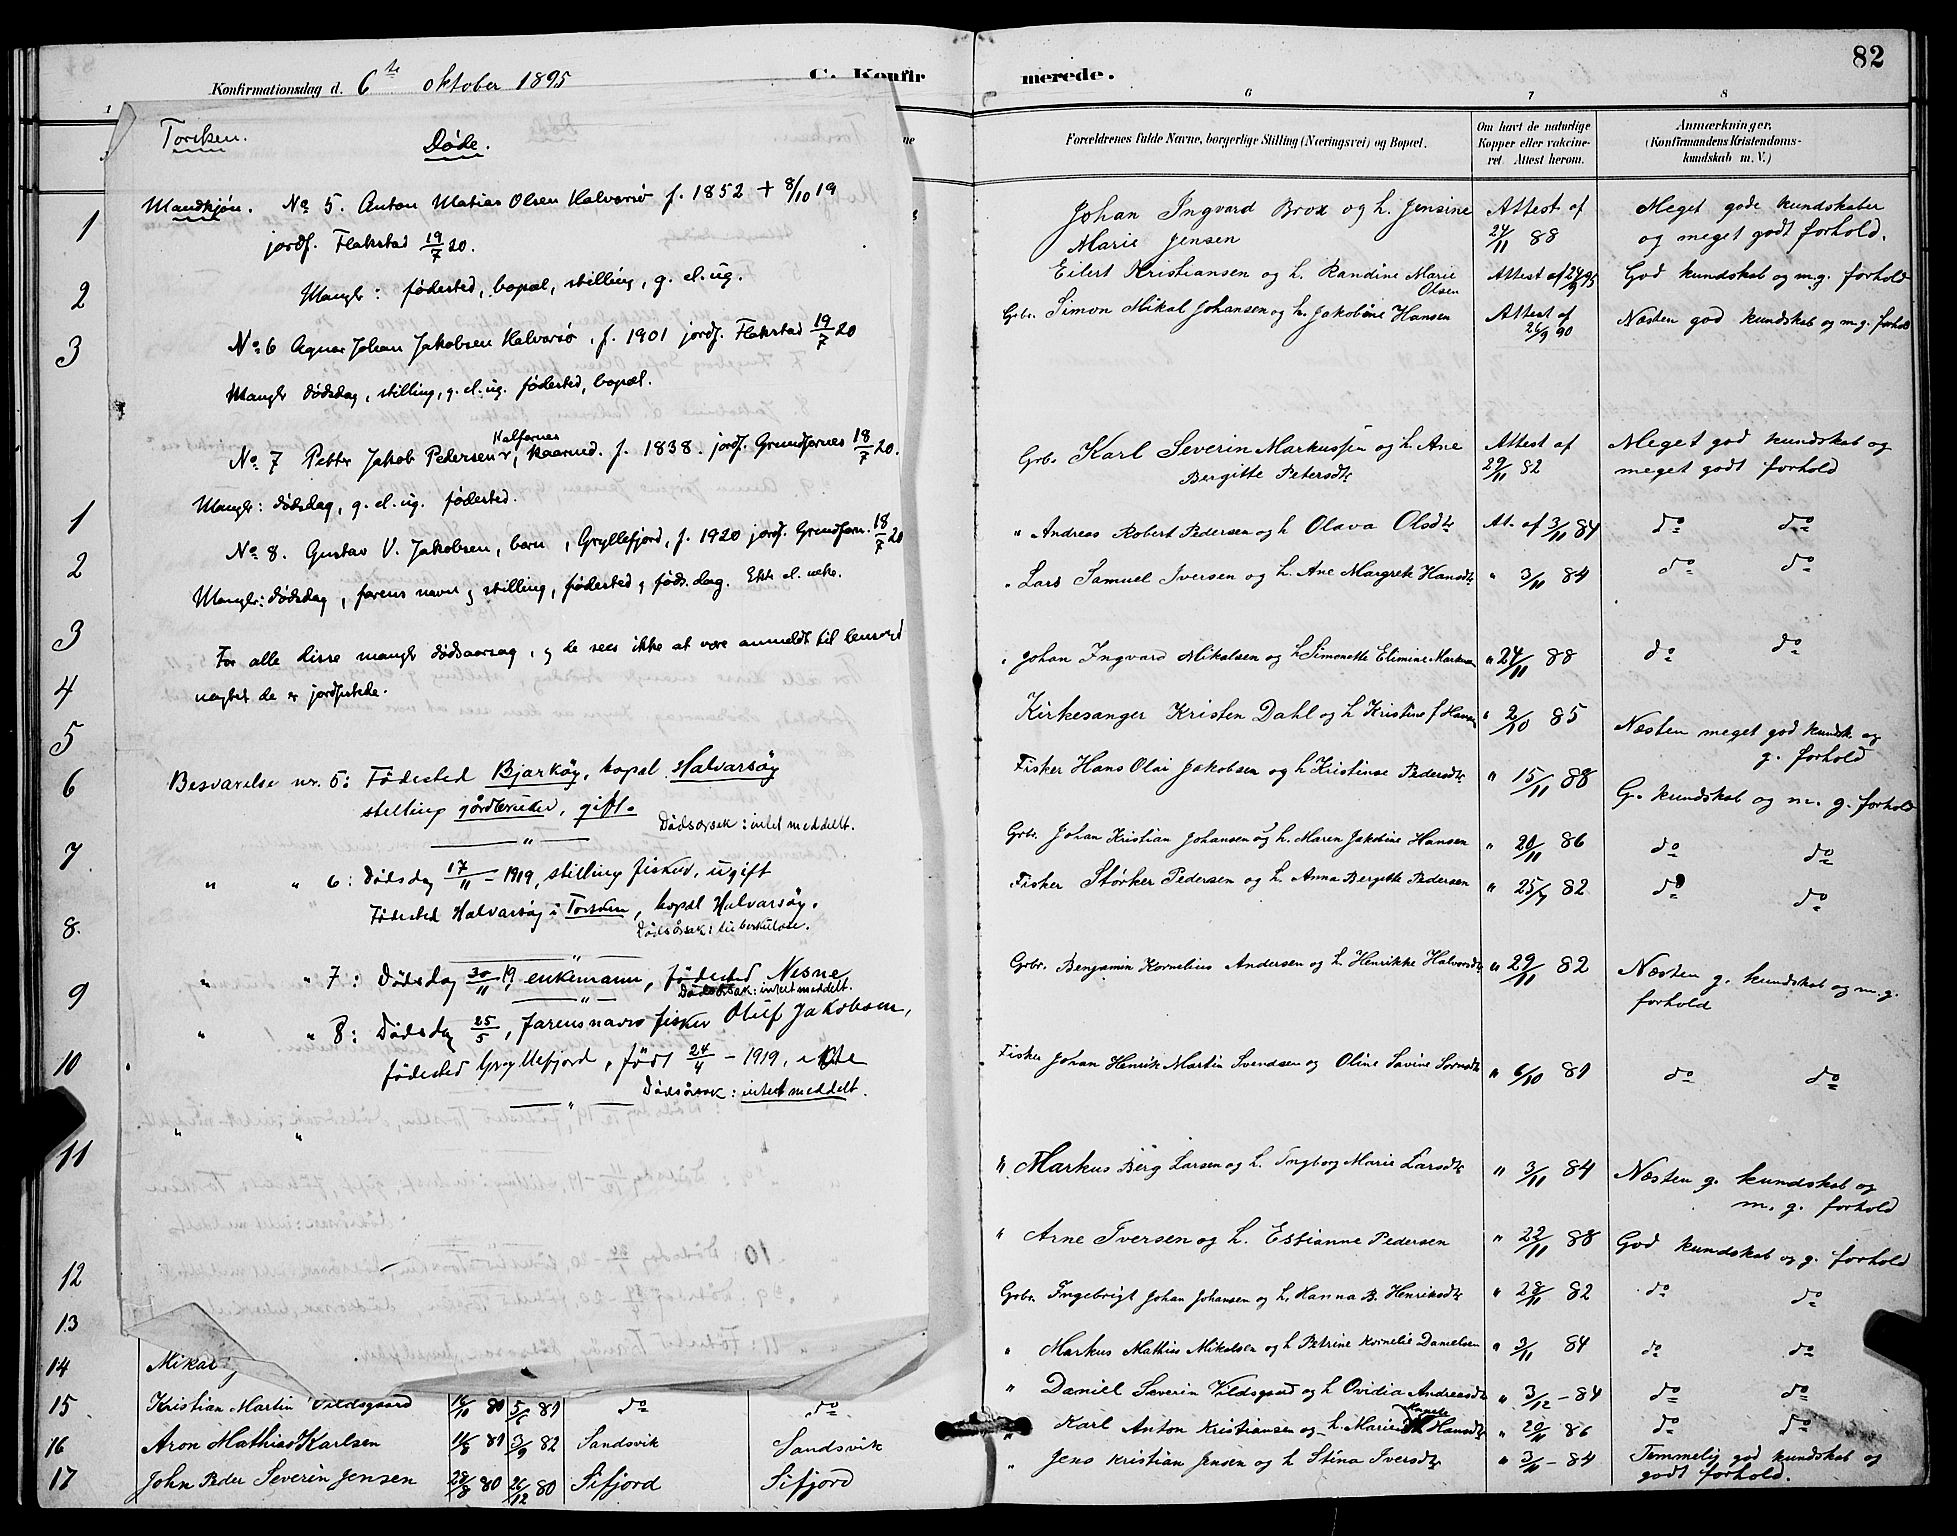 82
Konfirmationsdag d. 6te oktober 1895
C. Konfirmerede.
1
6
7
8
Forældrenes fulde Navne, borgerlige Stilling (Næringsvei) og Bopæl.
Om havt de naturlige Kopper eller vaccineret. Attest herom.
Anmærkninger, (Konfirmandens Kristendomskundskab m. V.)
Torsken. Døde.
Mandkjøn. No 5. Anton Matias Olsen Halvarsø f. 1852 + 8/10 19
jordf. Flakstad 19/7 20.
Mangler: fødested, bopæl, stilling, g. el. ug.
No 6 Agnar Johan Jakobsen Halvarsø, f. 1901 jordf. Flakstad 19/7 20
Mangler dødsdag, stilling, g. el. ug. fødested, bopæl.
No 7 Petter Jakob Pedersen, Kalfarnes kaarmd. f. 1838. jordf. Grundfarnes 18/7 20.
Mangler: dødsdag, g. el. ug. fødested.
No 8. Gustav V. Jakobsen, barn, Gryllefjord, f. 1920 jordf. Grundfarn. 18/7 20
Mangler: dødsdag, farens navn og stilling, fødested, føds.dag. Ekte el. uekte.
For alle disse mangler dødsaarsag, og de sees ikke at være anmeldt til lensmand
uagtet de er jordfæstede.
Besvarelse nr. 5: Fødested Bjarkøy, bopæl Halvarsøy
stilling gårdbruker, gift.
Dødsårsak: intet meddelt.
" " 6: Dødsdag 17/11 - 1919, stilling fisker, ugift
Fødested Halvarsøy i Torsken, bopæl Halvarsøy.
Dødsårsak: tuberkulose.
" " 7: Dødsdag 30/11 19, enkemann, fødested Nesne,
Dødsårsak: intet meddelt.
" " 8: Dødsdag 25/5, farens navn fisker Oluf Jakobsen,
fødested Gryllefjord, født 24/4 - 1919,
Dødsårsak: intet meddelt.
" "
1 Johan Ingvard Brox og h. Jensine Marie Jensen Attest af 24/11 88 Meget gode kundskaber og meget godt forhold.
2 Eilert Kristiansen og h. Randine Marie Olsen Attest af 24/9 95 God kundskab og m.g. forhold
3 Grbr. Simon Mikal Johansen og h. Jakobine Hansen Attest af 26/9 90 Næsten god kundskab og m.g. forhold
1 Grb. Karl Severin Markussen og h. Ane Bergitte Petersdtr Attest af 29/11 82 Meget god kundskab og meget godt forhold
2 " Andreas Robert Pedersen og h Olava Olsdtr At. af 3/11 84 do do
3 " Lars Samuel Iversen og h. Ane Margrete Hansdtr " 3/11 84 do do
4 " Johan Ingvard Mikalsen og h Simonette Elimine Markussen " 24/11 88 do do
5 Kirkesanger Kristen Dahl og h Kristine f Hansen " 2/10 85 Næsten meget god kundsk. og g. forhold
6 Fisker Hans Olai Jakobsen og h Kristense Pedersdtr " 15/11 88 G. kundskab og m. g. forhold
7 Grbr. Johan Kristian Johansen og h. Maren Jakobine Hansen " 20/11 86 do do
8. Fisker Størker Pedersen og h. Anna Bergitte Pedersen " 25/7 82 do do
9 Grbr. Benjamin Kornelius Andersen og h Henrikke Halvorsdtr " 29/11 82 Næsten g. kundskab og m.g. forhold
10 Fisker Johan Henrik Martin Svendsen og Oline Savine Sørensdtr " 6/10 81 do do
11 " Markus Berg Larsen og h. Ingborg Marie Larsdtr " 3/11 84 Næsten g. kundskab og m. g. forhold
12 " Arne Iversen og h. Essianne Pedersen " 22/11 88 God kundskab og g. forhold
13 Grbr. Ingebrigt Johan Johansen og h. Hanna B. Henriksdtr " 28/11 82 do do
14 Mikal " Markus Mathias Mikalsen og h Petrine Kornelie Danielsen " 3/11 84 do do
15 Kristian Martin Vildsgaard 16/10 80 5/6 81 do do " Daniel Severin Vildsgaard og h Ovidia Andreasdtr " 3/12 - 84 do do
16 Aron Mathias Karlsen 11/8 81 3/9 82 Sandsvik Sandsvik " Karl Anton Kristiansen og h. Marie Hansdtr " 20/11 86 do do
17 John Peder Severin Jensen 28/8 80 26/12 80 Sifjord Sifjord " Jens Kristian Jensen og h Stina Iversdtr " 3/11 - 84 Temmelig god kundskab og godt forhold.